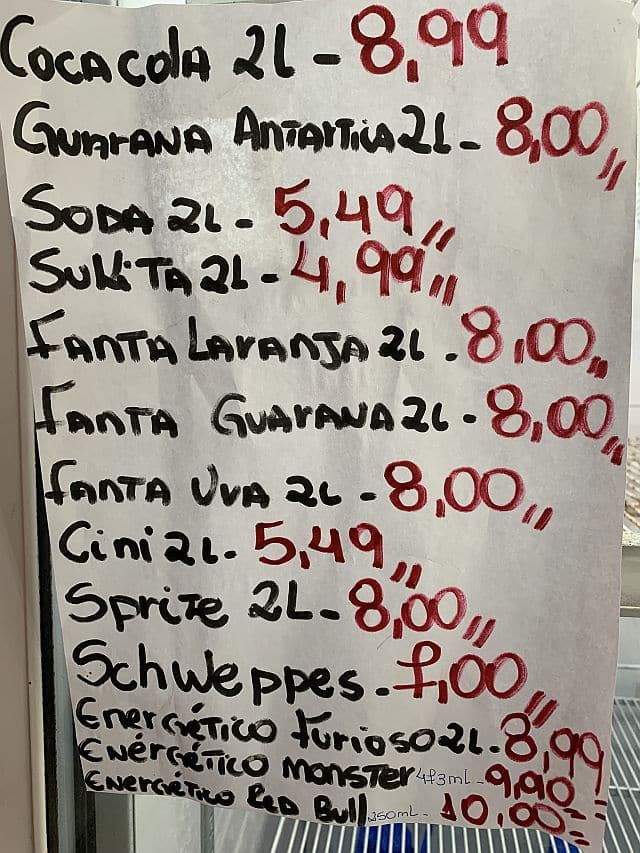 Coca cola 2L - 8,99
Guarana Antartica 2L - 8,00,,
Soda 2L - 5,49,,
Sukita 2L - 4,99,,
Fanta Laranja 2L - 8,00,,
Fanta Guarana 2L - 8,00,,
Fanta Uva 2L - 8,00,,
Cini 2L - 5,49,,
Sprite 2L - 8,00,,
Schweppes - 7,00,,
Energético furioso 2L - 8,99
Enérgético Monster 473ml - 9,90 =
Energético Red Bull 250mL - 10,00 =